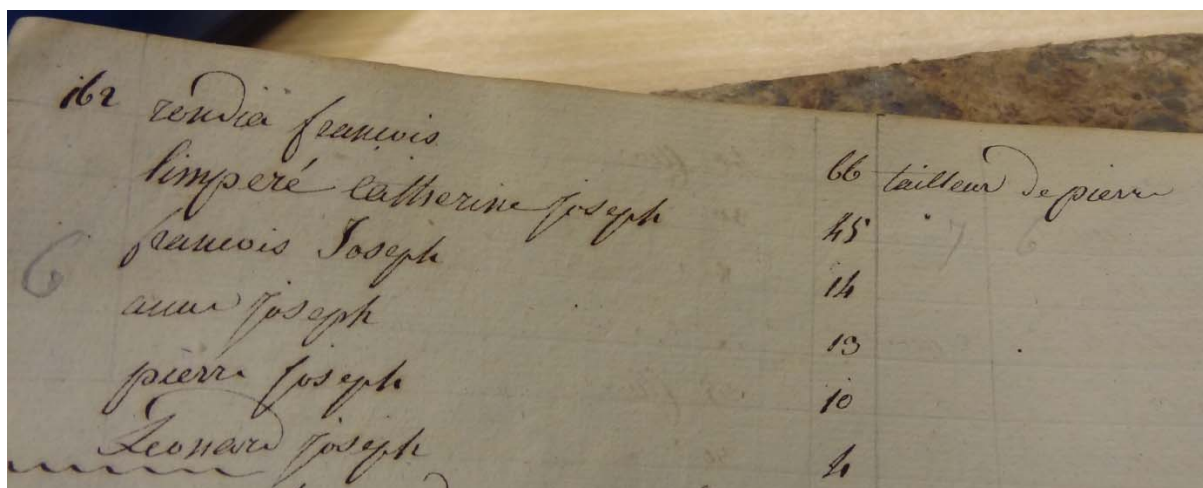 162 rondia francois 66 tailleur de pierre
limperé Catherine joseph 45
francois Joseph 14
6 anne joseph 13
pierre joseph 10
Leonard joseph 4